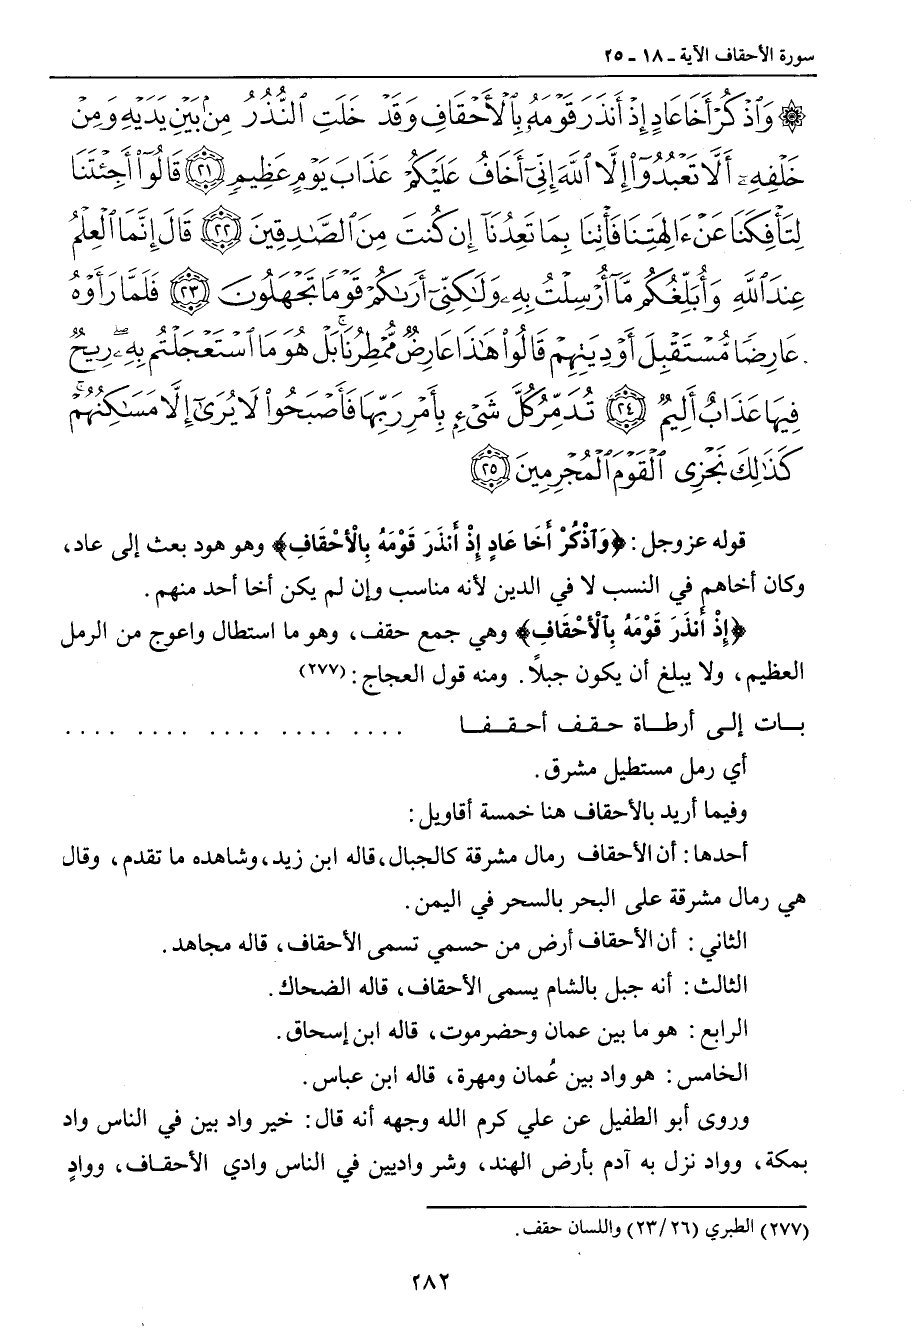 سورة الأحقاف الآية ـ ١٨ ـ ٢٥
۞ وَاذْكُرْ أَخَا عَادٍ إِذْ أَنذَرَ قَوْمَهُ بِالْأَحْقَافِ وَقَدْ خَلَتِ النُّذُرُ مِنْ بَيْنِ يَدَيْهِ وَمِنْ
خَلْفِهِ أَلَّا تَعْبُدُوا إِلَّا اللَّهَ إِنِّي أَخَافُ عَلَيْكُمْ عَذَابَ يَوْمٍ عَظِيمٍ ٢١ قَالُوا أَجِئْتَنَا
لِتَأْفِكَنَا عَنْ ءَالِهَتِنَا فَأْتِنَا بِمَا تَعِدُنَا إِن كُنتَ مِنَ الصَّادِقِينَ ٢٢ قَالَ إِنَّمَا الْعِلْمُ
عِندَ اللَّهِ وَأُبَلِّغُكُم مَّا أُرْسِلْتُ بِهِ وَلَٰكِنِّي أَرَىٰكُمْ قَوْمًا تَجْهَلُونَ ٢٣ فَلَمَّا رَأَوْهُ
عَارِضًا مُّسْتَقْبِلَ أَوْدِيَتِهِمْ قَالُوا هَٰذَا عَارِضٌ مُّمْطِرُنَا بَلْ هُوَ مَا اسْتَعْجَلْتُم بِهِ رِيحٌ
فِيهَا عَذَابٌ أَلِيمٌ ٢٤ تُدَمِّرُ كُلَّ شَيْءٍ بِأَمْرِ رَبِّهَا فَأَصْبَحُوا لَا يُرَىٰ إِلَّا مَسَاكِنُهُمْ
كَذَٰلِكَ نَجْزِي الْقَوْمَ الْمُجْرِمِينَ ٢٥
قوله عز وجل: ﴿وَاذْكُرْ أَخَا عَادٍ إِذْ أَنذَرَ قَوْمَهُ بِالْأَحْقَافِ﴾ وهو هود بعث إلى عاد،
وكان أخاهم في النسب لا في الدين لأنه مناسب وإن لم يكن أخا أحد منهم.
﴿إِذْ أَنْذَرَ قَوْمَهُ بِالْأَحْقَافِ﴾ وهي جمع حقف، وهو ما استطال واعوج من الرمل
العظيم، ولا يبلغ أن يكون جبلاً. ومنه قول العجاج: (٢٧٧)
بـات إلى أرطـاة حـقـف أحـقـفـا .... .... .... .... ....
أي رمل مستطيل مشرق.
وفيما أريد بالأحقاف هنا خمسة أقاويل:
أحدها: أن الأحقاف رمال مشرقة كالجبال، قاله ابن زيد، وشاهده ما تقدم، وقال
هي رمال مشرقة على البحر بالسحر في اليمن.
الثاني: أن الأحقاف أرض من حسمي تسمى الأحقاف، قاله مجاهد.
الثالث: أنه جبل بالشام يسمى الأحقاف، قاله الضحاك.
الرابع: هو ما بين عمان وحضرموت، قاله ابن إسحاق.
الخامس: هو واد بين عُمان ومهرة، قاله ابن عباس.
وروى أبو الطفيل عن علي كرم الله وجهه أنه قال: خير واد بين في الناس واد
بمكة، وواد نزل به آدم بأرض الهند، وشر واديين في الناس وادي الأحقـاف، ووادٍ
(٢٧٧) الطبري (٢٣/٢٦) واللسان حقف.
٢٨٢